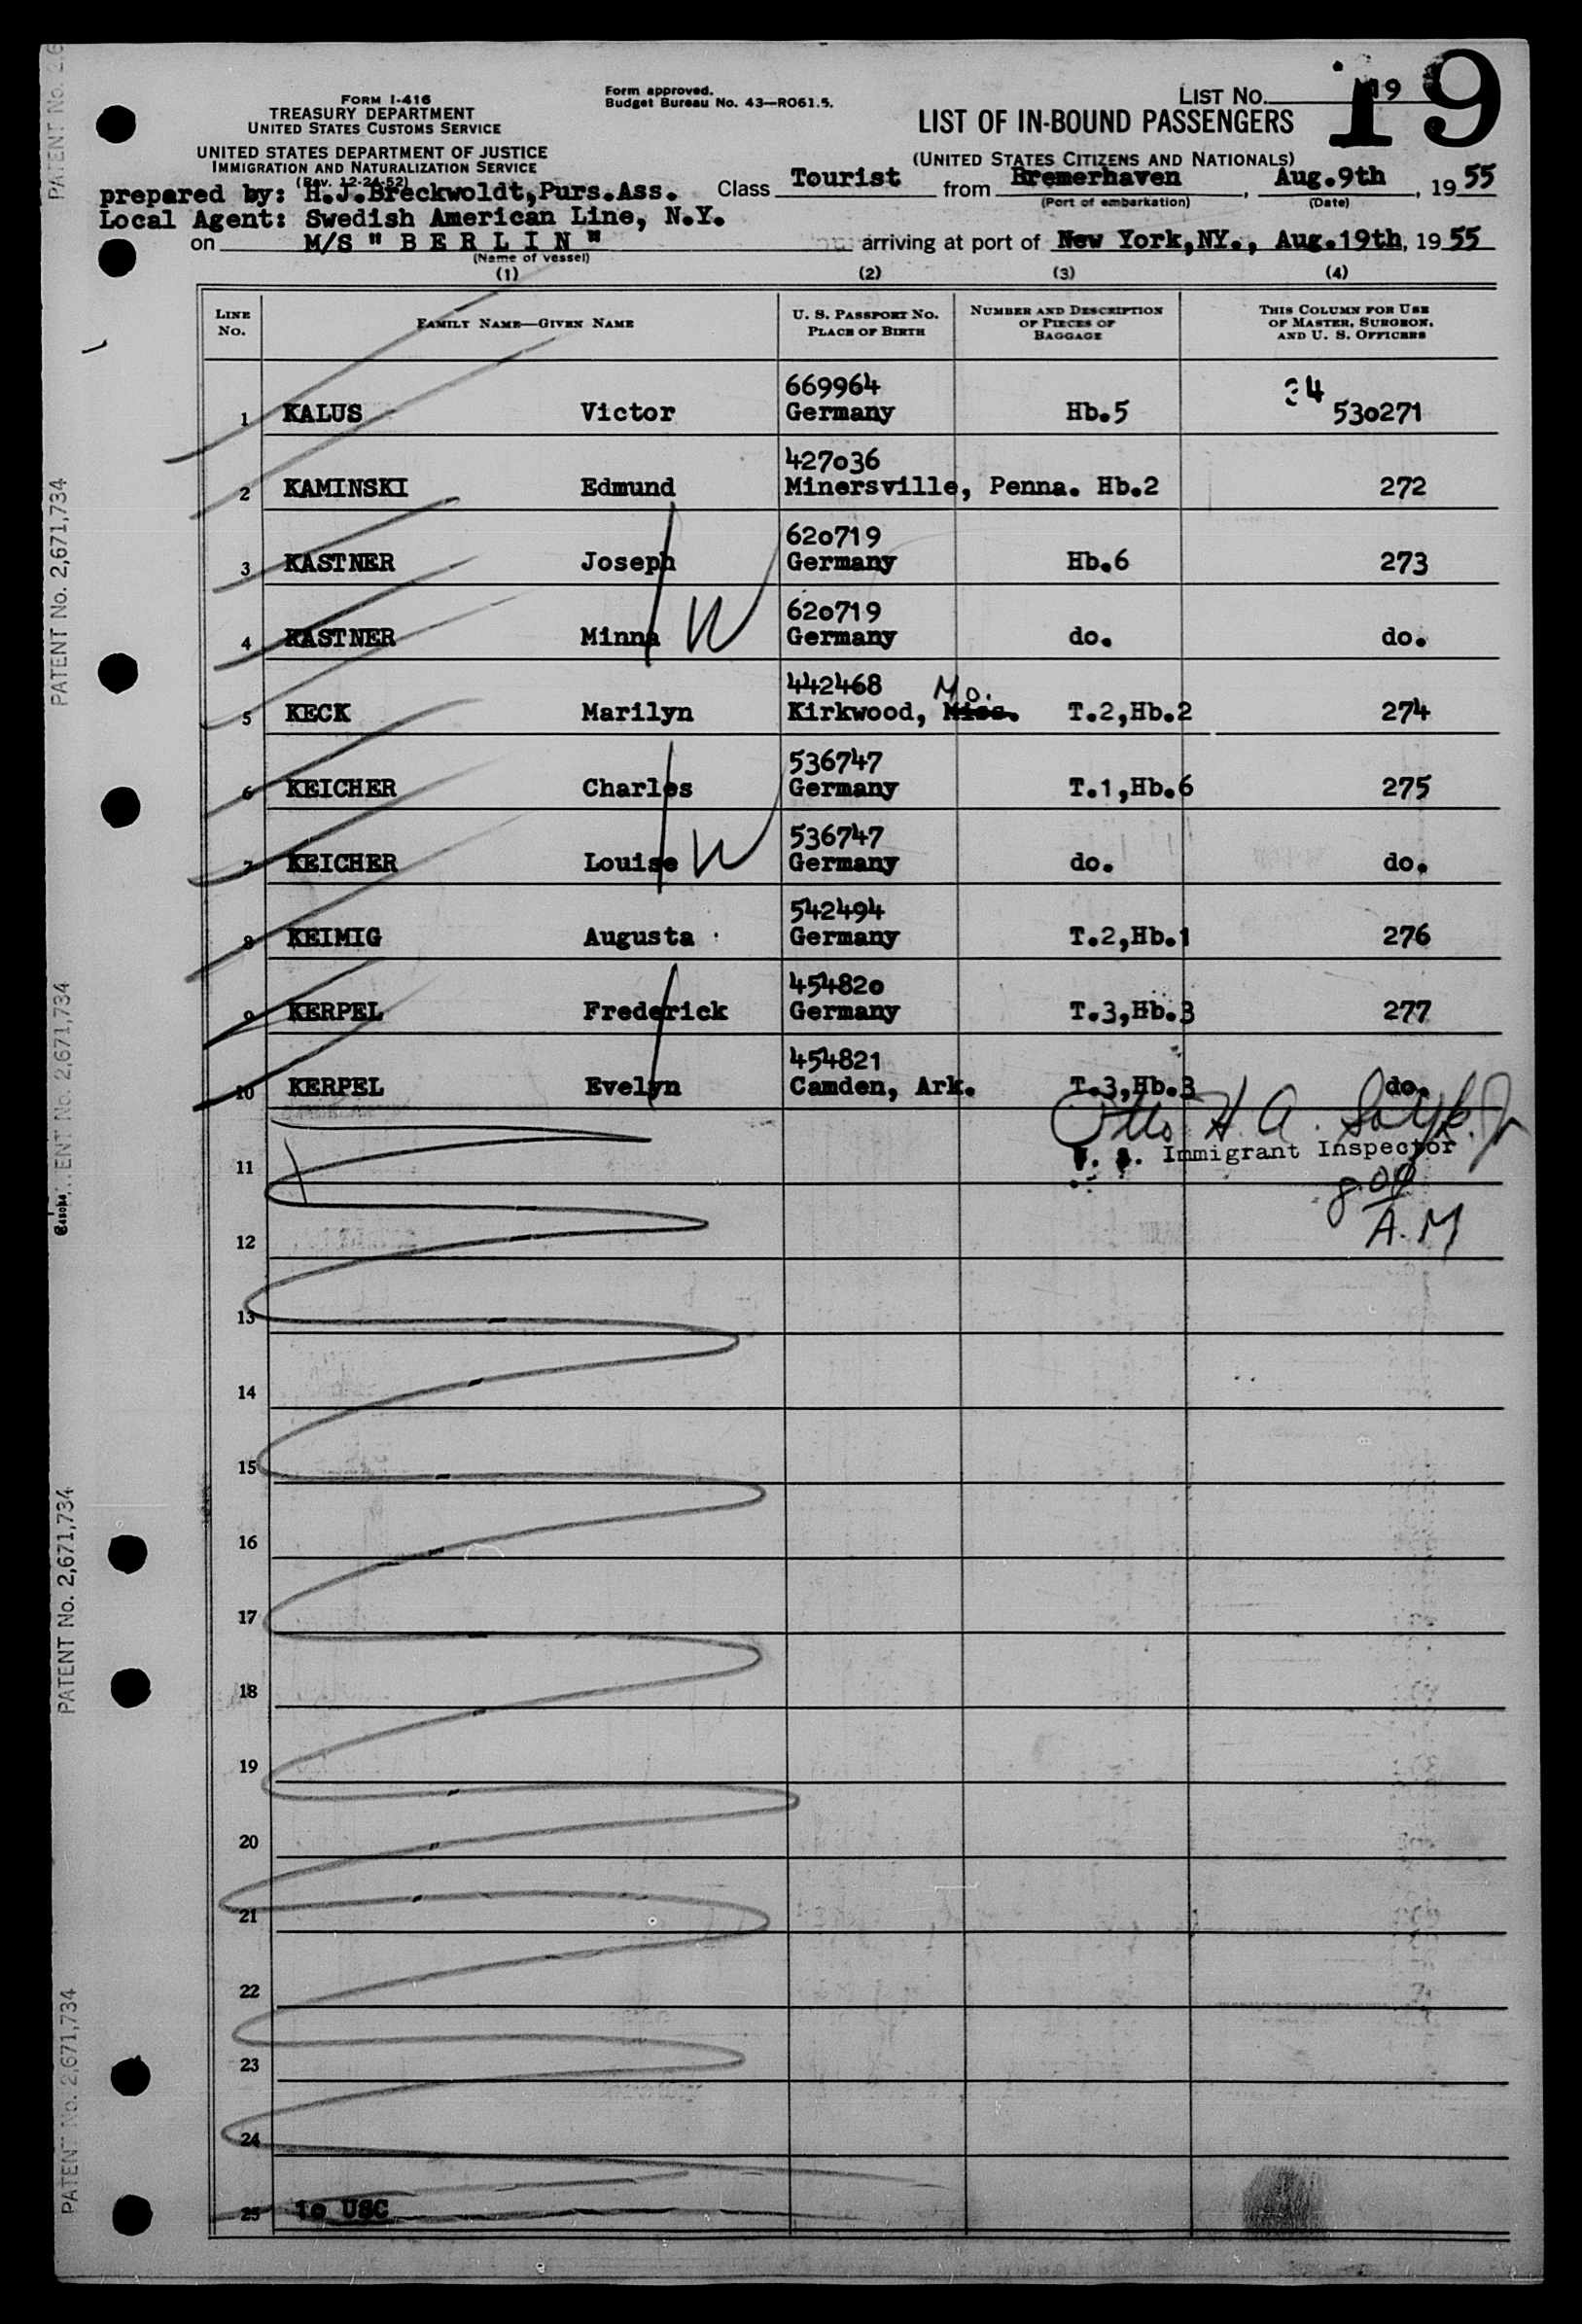 19
LIST No. 19
FORM I-416
TREASURY DEPARTMENT
UNITED STATES CUSTOMS SERVICE
UNITED STATES DEPARTMENT OF JUSTICE
IMMIGRATION AND NATURALIZATION SERVICE
(Rev. 12-24-52)
Form approved.
Budget Bureau No. 43—RO61.5.
LIST OF IN-BOUND PASSENGERS
(UNITED STATES CITIZENS AND NATIONALS)
prepared by: H.J.Breckwoldt,Purs.Ass.
Class Tourist from Bremerhaven, Aug.9th, 19 55
(Port of embarkation) (Date)
Local Agent: Swedish American Line, N.Y.
on M/S " B E R L I N " arriving at port of New York,NY., Aug.19th, 19 55
(Name of vessel)
(1) (2) (3) (4)
LINE No. FAMILY NAME—GIVEN NAME U. S. PASSPORT NO. PLACE OF BIRTH NUMBER AND DESCRIPTION OF PIECES OF BAGGAGE THIS COLUMN FOR USE OF MASTER, SURGEON, AND U. S. OFFICERS
669964 34
1 KALUS Victor Germany Hb.5 530271
427036
2 KAMINSKI Edmund Minersville, Penna. Hb.2 272
620719
3 KASTNER Joseph Germany Hb.6 273
620719
4 KASTNER Minna W Germany do. do.
442468 Mo.
5 KECK Marilyn Kirkwood, Miss. T.2,Hb.2 274
536747
6 KEICHER Charles Germany T.1,Hb.6 275
536747
7 KEICHER Louise W Germany do. do.
542494
8 KEIMIG Augusta Germany T.2,Hb.1 276
454820
9 KERPEL Frederick Germany T.3,Hb.3 277
454821
10 KERPEL Evelyn Camden, Ark. T.3,Hb.3 do.
Otto H. A.
Immigrant Inspector
11
8 00
A.M
12
13
14
15
16
17
18
19
20
21
22
23
24
25 10 USC
PATENT No. 2,671,734
PATENT No. 2,671,734
PATENT No. 2,671,734
PATENT No. 2,671,734